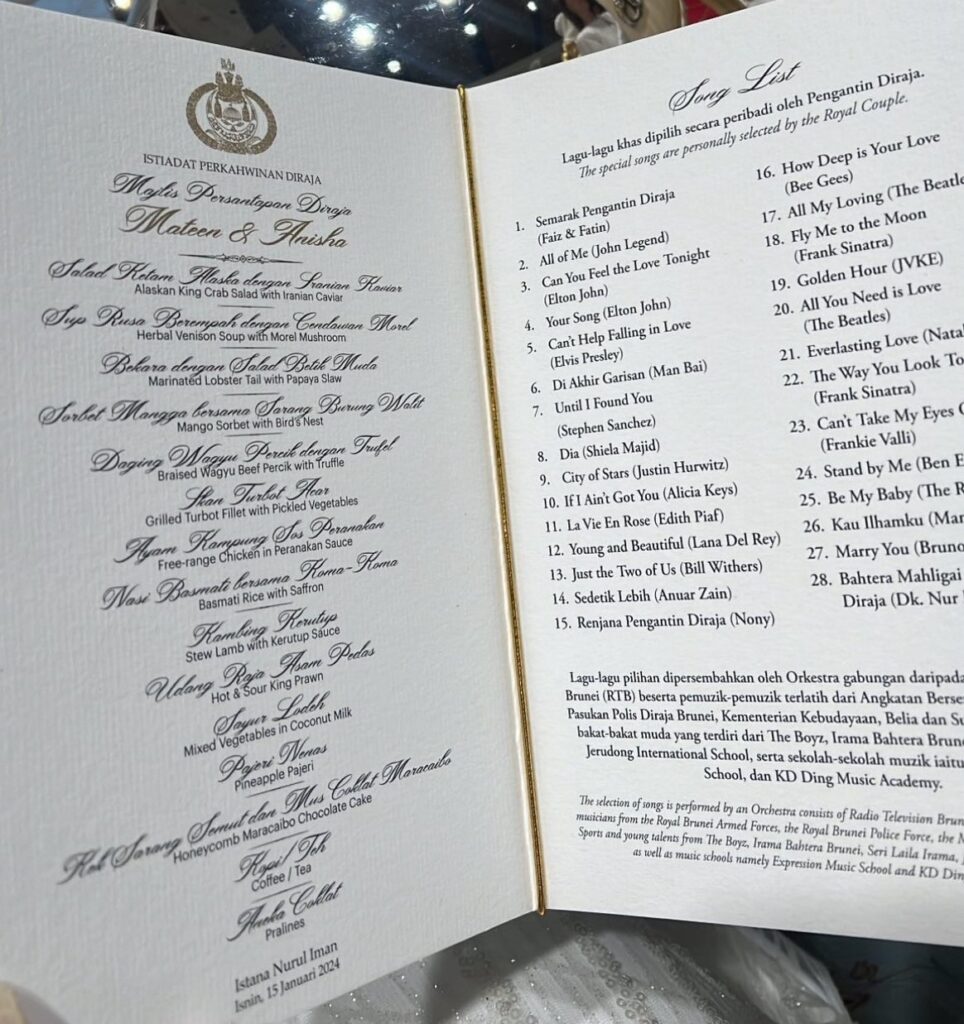 ISTIADAT PERKAHWINAN DIRAJA
Majlis Persantapan Diraja
Mateen & Anisha
Salad Ketam Alaska dengan Iranian Kaviar
Alaskan King Crab Salad with Iranian Caviar
Sup Rusa Berempah dengan Cendawan Morel
Herbal Venison Soup with Morel Mushroom
Bekara dengan Salad Betik Muda
Marinated Lobster Tail with Papaya Slaw
Sorbet Mangga bersama Sarang Burung Walit
Mango Sorbet with Bird's Nest
Daging Wagyu Percik dengan Trufel
Braised Wagyu Beef Percik with Truffle
Ikan Turbot Acar
Grilled Turbot Fillet with Pickled Vegetables
Ayam Kampung Sos Peranakan
Free-range Chicken in Peranakan Sauce
Nasi Basmati bersama Koma-Koma
Basmati Rice with Saffron
Kambing Kerutup
Stew Lamb with Kerutup Sauce
Udang Raja Asam Pedas
Hot & Sour King Prawn
Sayur Lodeh
Mixed Vegetables in Coconut Milk
Pajeri Nenas
Pineapple Pajeri
Kek Sarang Semut dan Mus Coklat Maracaibo
Honeycomb Maracaibo Chocolate Cake
Kopi/Teh
Coffee / Tea
Aneka Coklat
Pralines
Istana Nurul Iman
Isnin, 15 Januari 2024
Song List
Lagu-lagu khas dipilih secara peribadi oleh Pengantin Diraja.
The special songs are personally selected by the Royal Couple.
1. Semarak Pengantin Diraja
(Faiz & Fatin)
2. All of Me (John Legend)
3. Can You Feel the Love Tonight
(Elton John)
4. Your Song (Elton John)
5. Can't Help Falling in Love
(Elvis Presley)
6. Di Akhir Garisan (Man Bai)
7. Until I Found You
(Stephen Sanchez)
8. Dia (Shiela Majid)
9. City of Stars (Justin Hurwitz)
10. If I Ain't Got You (Alicia Keys)
11. La Vie En Rose (Edith Piaf)
12. Young and Beautiful (Lana Del Rey)
13. Just the Two of Us (Bill Withers)
14. Sedetik Lebih (Anuar Zain)
15. Renjana Pengantin Diraja (Nony)
16. How Deep is Your Love
(Bee Gees)
17. All My Loving (The Beatle
18. Fly Me to the Moon
(Frank Sinatra)
19. Golden Hour (JVKE)
20. All You Need is Love
(The Beatles)
21. Everlasting Love (Nata
22. The Way You Look To
(Frank Sinatra)
23. Can't Take My Eyes
(Frankie Valli)
24. Stand by Me (Ben E
25. Be My Baby (The R
26. Kau Ilhamku (Man
27. Marry You (Bruno
28. Bahtera Mahligai
Diraja (Dk. Nur
Lagu-lagu pilihan dipersembahkan oleh Orkestra gabungan daripada
Brunei (RTB) beserta pemuzik-pemuzik terlatih dari Angkatan Berse
Pasukan Polis Diraja Brunei, Kementerian Kebudayaan, Belia dan Su
bakat-bakat muda yang terdiri dari The Boyz, Irama Bahtera Brun
Jerudong International School, serta sekolah-sekolah muzik iaitu
School, dan KD Ding Music Academy.
The selection of songs is performed by an Orchestra consists of Radio Television Brun
musicians from the Royal Brunei Armed Forces, the Royal Brunei Police Force, the
Sports and young talents from The Boyz, Irama Bahtera Brunei, Seri Laila Irama,
as well as music schools namely Expression Music School and KD Din